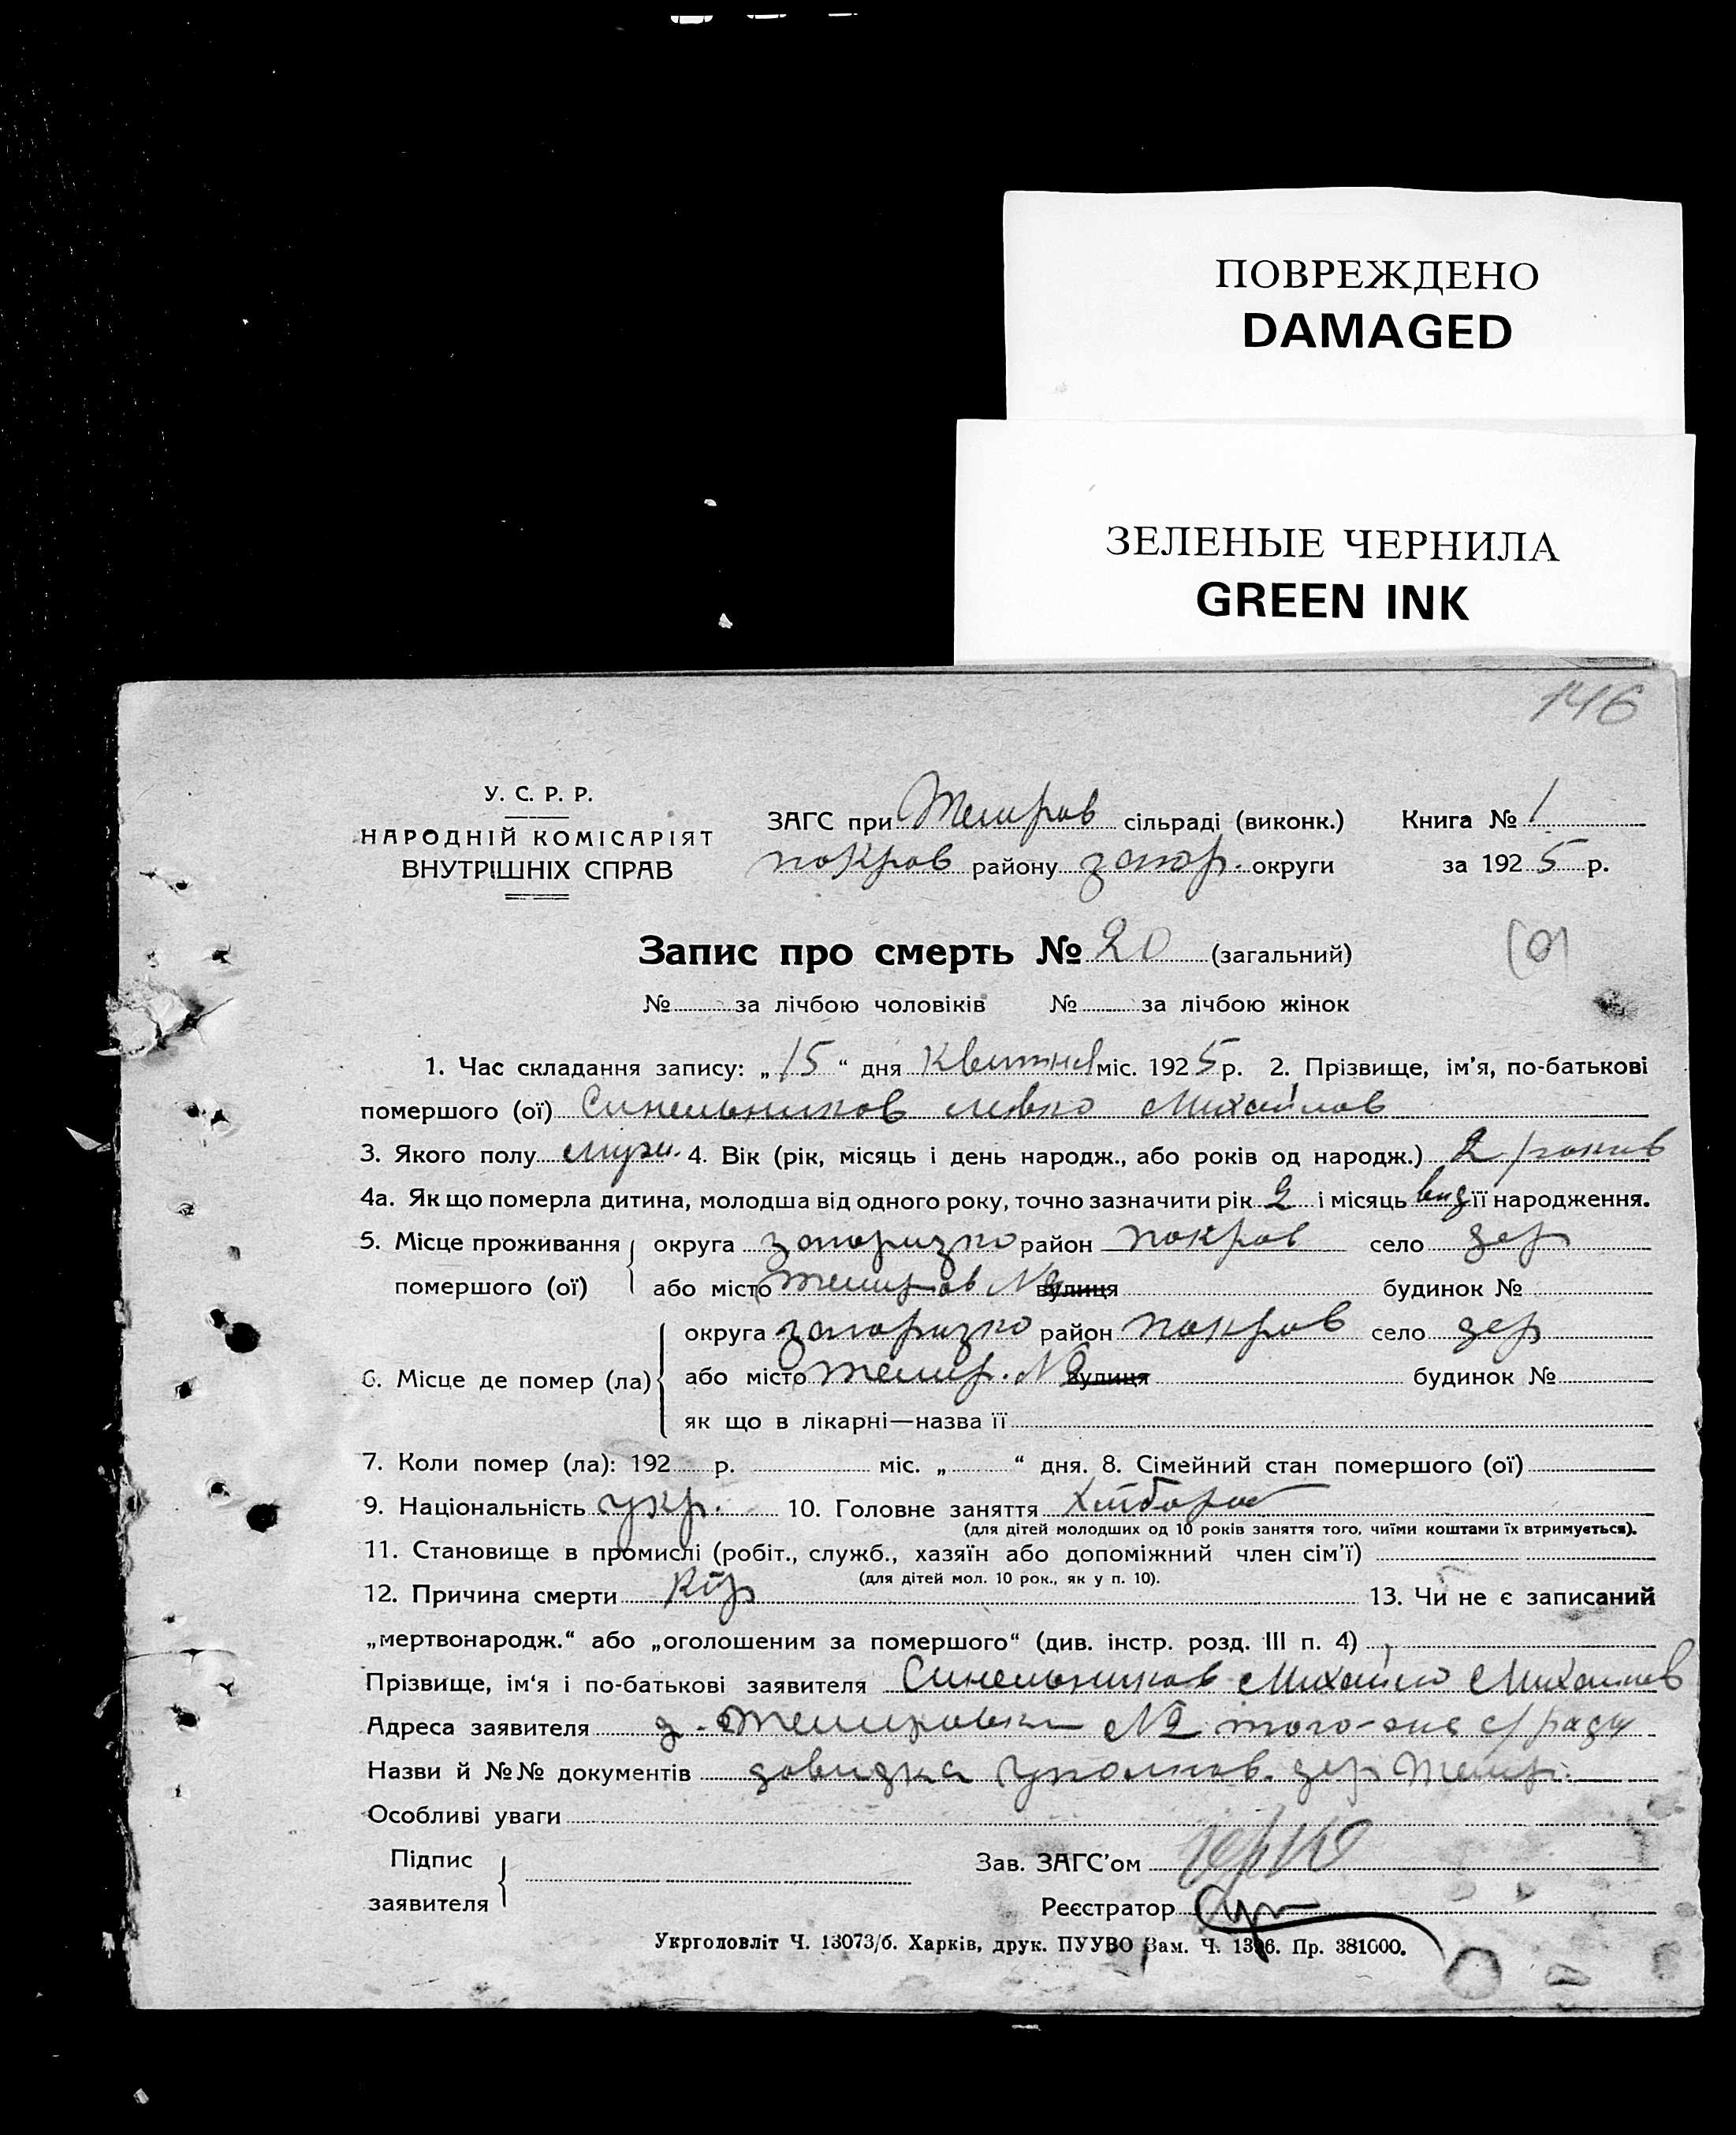 ПОВРЕЖДЕНО
DAMAGED
ЗЕЛЕНЫЕ ЧЕРНИЛА
GREEN INK
146
У. С. Р. Р.
НАРОДНІЙ КОМІСАРІЯТ
ВНУТРІШНІХ СПРАВ
ЗАГС при Темиров сільраді (виконк.) Книга № 1
покров району запор. округи за 1925 р.
Запис про смерть № 20 (загальний)
№ за лічбою чоловіків № за лічбою жінок
1. Час складання запису: „15“ дня Квитня міс. 1925 р. 2. Прізвище, ім'я, по-батькові
помершого (ої) Синельников Михайлов
3. Якого полу 4. Вік (рік, місяць і день народж., або років од народж.) 2 рокив
4а. Як що померла дитина, молодша від одного року, точно зазначити рік 2 і місяць вид її народження.
5. Місце проживання округа запоризко район покров село дер
помершого (ої) або місто темиров № 2 вулиця будинок №
округа запоризко район покров село дер
6. Місце де помер (ла) або місто темир. № 2 вулиця будинок №
як що в лікарні—назва її
7. Коли помер (ла): 192 р. міс. „ “ дня. 8. Сімейний стан помершого (ої)
9. Національність укр. 10. Головне заняття Хлібороб
(для дітей молодших од 10 років заняття того, чиїми коштами їх втримується).
11. Становище в промислі (робіт., служб., хазяїн або допоміжний член сім'ї)
(для дітей мол. 10 рок., як у п. 10).
12. Причина смерти Кір 13. Чи не є записаний
„мертвонародж.“ або „оголошеним за помершого“ (див. інстр. розд. III п. 4)
Прізвище, ім'я і по-батькові заявителя Синельников Михайло Михайлов
Адреса заявителя д. Темировка № 2 того-же с/ради
Назви й №№ документів довидка уполнов. дер Темир.
Особливі уваги
Підпис
заявителя
Зав. ЗАГС'ом
Реєстратор
Укрголовліт Ч. 13073/б. Харків, друк. ПУУВО Зам. Ч. 1396. Пр. 381000.